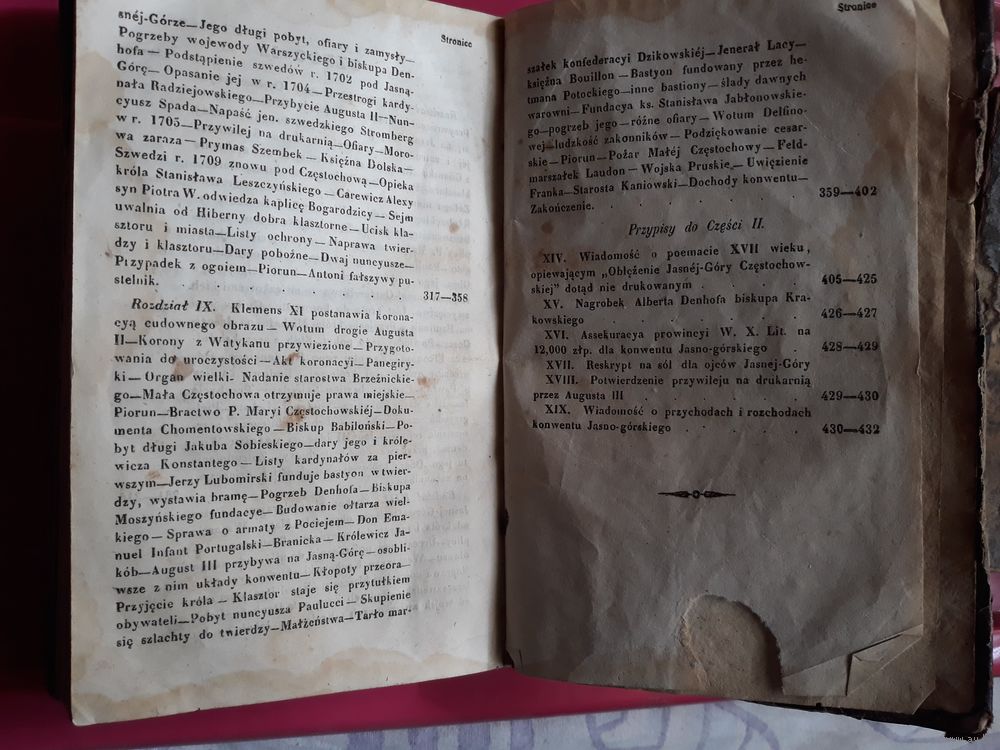 Stronice
snéj-Górze—Jego długi pobyt, ofiary i zamysły—
Pogrzeby wojewody Warszyckiego i biskupa Den-
hofa — Podstąpienie szwedów r. 1702 pod Jasną-
Górę— Opasanie jej w r. 1704—Przestrogi kardy-
nała Radziejowskiego—Przybycie Augusta II—Nun-
cyusz Spada—Napaść jen. szwedzkiego Stromberg
w r. 1705—Przywilej na drukarnią—Ofiary—Moro-
wa zaraza — Prymas Szembek — Księżna Dolska—
Szwedzi r. 1709 znowu pod Częstochową—Opieka
króla Stanisława Leszczyńskiego — Carewicz Alexy
syn Piotra W. odwiedza kaplicę Bogarodzicy — Sejm
uwalnia od Hiberny dobra klasztorne — Ucisk kla-
sztoru i miasta—Listy ochrony — Naprawa twier-
dzy i klasztoru—Dary pobożne—Dwaj nuncyusze—
Przypadek z ogniem—Piorun—Antoni fałszywy pu-
stelnik. . . . . . . . . 317—358
Rozdział IX. Klemens XI postanawia korona-
cyą cudownego obrazu — Wotum drogie Augusta
II—Korony z Watykanu przywiezione — Przygoto-
wania do uroczystości — Akt koronacyi—Panegiry-
ki — Organ wielki- Nadanie starostwa Brzeźnickie-
go—Mała Częstochowa otrzymuje prawa miejskie—
Piorun—Bractwo P. Maryi Częstochowskiéj—Doku-
menta Chomentowskiego — Biskup Babiloński—Po-
byt długi Jakuba Sobieskiego—dary jego i króle-
wicza Konstantego — Listy kardynałów za pier-
wszym—Jerzy Lubomirski funduje bastyon w twier-
dzy, wystawia bramę—Pogrzeb Denhofa — Biskupa
Moszyńskiego fundacye— Budowanie ołtarza wiel-
kiego — Sprawa o armaty z Pociejem— Don Ema-
nuel Infant Portugalski—Branicka— Królewicz Ja-
kób—August III przybywa na Jasną-Górę — osobli-
wsze z nim układy konwentu— Kłopoty przeora—
Przyjęcie króla — Klasztor staje się przytułkiem
obywateli—Pobyt nuncyusza Paulucci — Skupienie
się szlachty do twierdzy—Małżeństwa—Tarło mar-
Stronice
szałek konfederacyi Dzikowskiéj—Jenerał Lacy—
księżna Bouillon — Bastyon fundowany przez he-
tmana Potockiego—inne bastiony — ślady dawnych
warowni — Fundacya ks. Stanisława Jabłonowskie-
go—pogrzeb jego — różne ofiary — Wotum Delfino-
wej—ludzkość zakonników — Podziękowanie cesar-
skie — Piorun — Pożar Małéj Częstochowy — Feld-
marszałek Laudon — Wojska Pruskie — Uwięzienie
Franka—Starosta Kaniowski—Dochody konwentu—
Zakończenie. . . . . . . . 359—402
Przypisy do Części II.
XIV. Wiadomość o poemacie XVII wieku,
opiewającym „Oblężenie Jasnéj-Góry Częstochow-
skiej” dotąd nie drukowanym . . . 405—425
XV. Nagrobek Alberta Denhofa biskupa Kra-
kowskiego . . . . . . 426—427
XVI. Assekuracya prowincyi W. X. Lit. na
12,000 złp. dla konwentu Jasno-górskiego . 428—429
XVII. Reskrypt na sól dla ojców Jasnej-Góry
XVIII. Potwierdzenie przywileju na drukarnią
przez Augusta III . . . . . 429—430
XIX. Wiadomość o przychodach i rozchodach
konwentu Jasno-górskiego . . . . 430—432